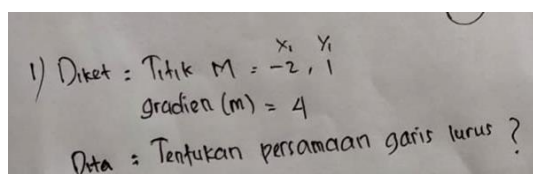 x₁ y₁
1) Diket : Titik M = -2, 1
gradien (m) = 4
Dita : Tentukan persamaan garis lurus ?